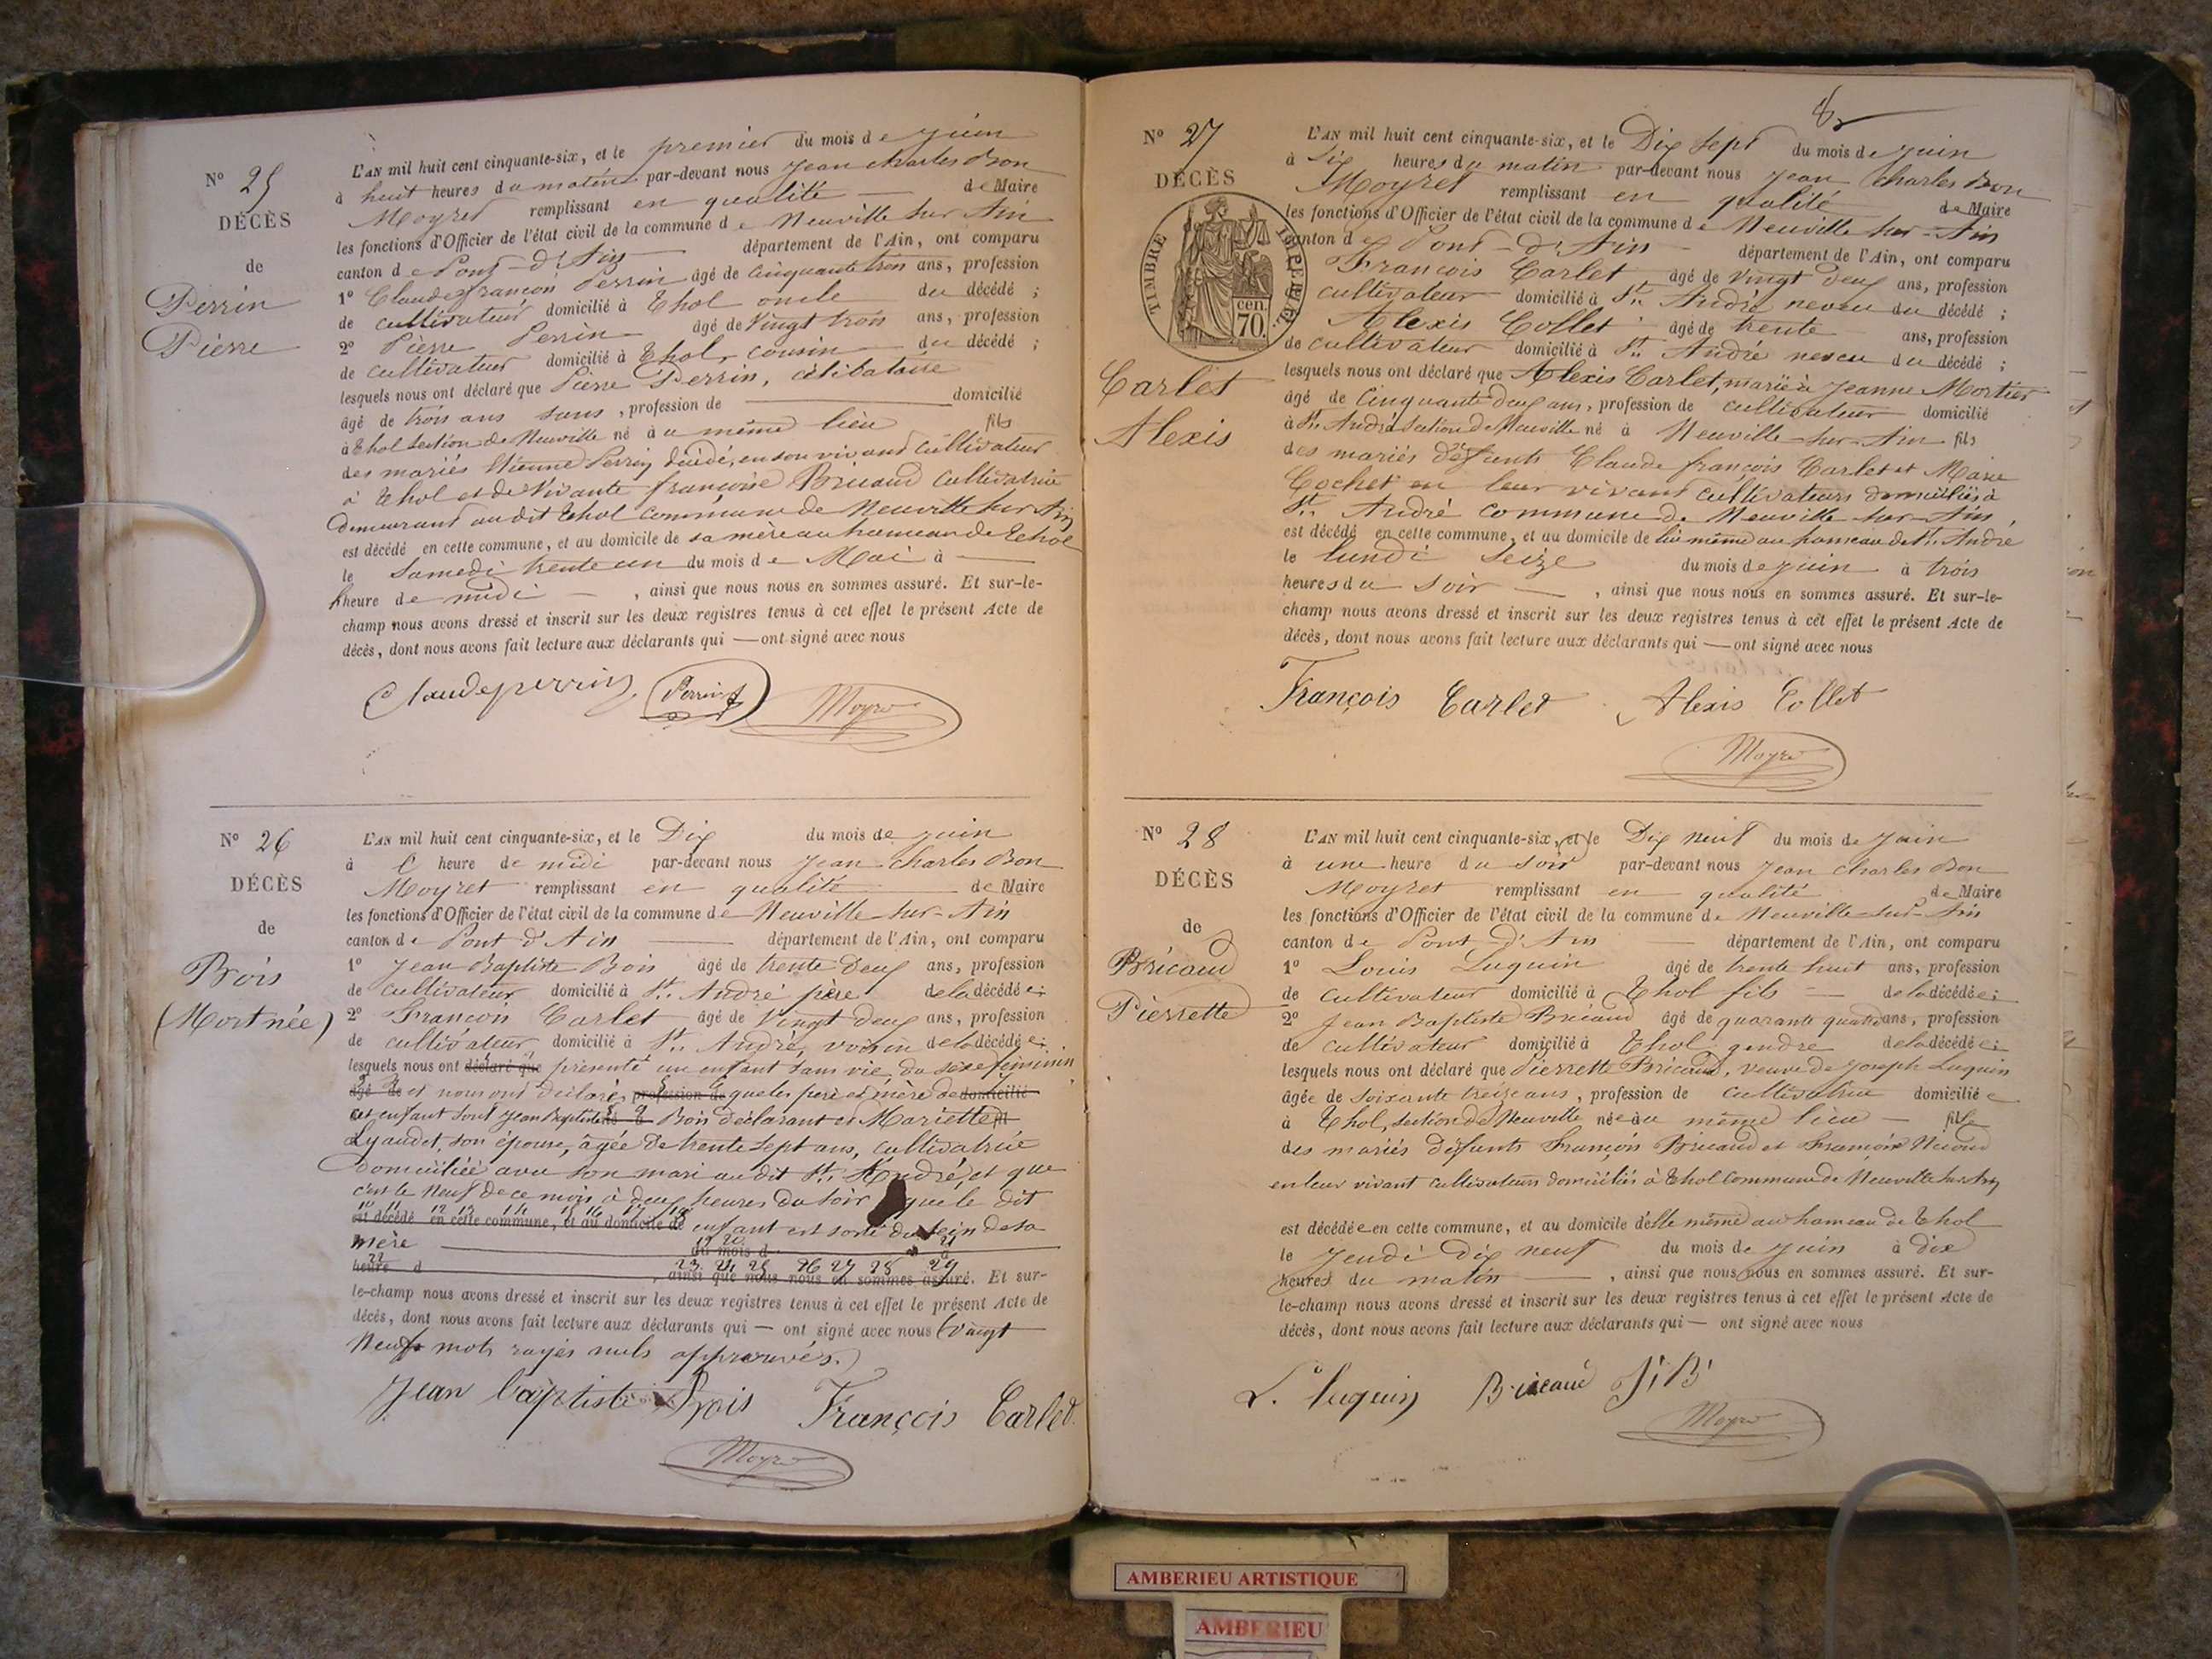 N° 25
DÉCÈS
de
Perrin
Pierre
L'AN mil huit cent cinquante-six, et le premier du mois de juin
à huit heures du matin par-devant nous jean charles Bon
Moyret remplissant en qualité de Maire
les fonctions d'Officier de l'état civil de la commune de Neuville sur Ain
canton de Pont-d'Ain département de l'Ain, ont comparu
1° Claude françois Perrin âgé de cinquante trois ans, profession
de cultivateur domicilié à Thol oncle du décédé ;
2° Pierre Perrin âgé de vingt trois ans, profession
de cultivateur domicilié à Thol, cousin du décédé ;
lesquels nous ont déclaré que Pierre Perrin, célibataire
âgé de trois ans sans, profession de domicilié
à Thol section de Neuville né à u même lieu fils
des mariés Etienne Perrin décédé, en son vivant cultivateur
à Thol et de vivante françoise Bricaud cultivatrice
demeurant audit Thol commune de Neuville sur Ain
est décédé en cette commune, et au domicile de sa mère au hameau de Thol
le samedi trente un du mois de Mai à
heure de midi , ainsi que nous nous en sommes assuré. Et sur-le-
champ nous avons dressé et inscrit sur les deux registres tenus à cet effet le présent Acte de
décès, dont nous avons fait lecture aux déclarants qui — ont signé avec nous
Claude perrin Perrin Moyret
N° 26
DÉCÈS
de
Bois
(Mort née)
L'AN mil huit cent cinquante-six, et le Dix du mois de juin
à l' heure de midi par-devant nous Jean charles Bon
Moyret remplissant en qualité de Maire
les fonctions d'Officier de l'état civil de la commune de Neuville-sur-Ain
canton de Pont d'Ain département de l'Ain, ont comparu
1° Jean Baptiste Bois âgé de trente deux ans, profession
de cultivateur domicilié à St. André père de la décédée ;
2° François Carlet âgé de vingt deux ans, profession
de cultivateur domicilié à St. André, voisin de la décédée ;
lesquels nous ont déclaré que présenté un enfant sans vie du sexe féminin
âgé de et nous ont déclaré profession de que les père et mère de domicilié
cet enfant sont Jean Baptiste né à Bois déclarant et Mariette fil
Lyaudet, son épouse, âgée de trente sept ans, cultivatrice
domiciliée avec son mari audit St. André, et que
c'est le neuf de ce mois à deux heures du soir que le dit
10 11 12 13 14 15 16 17 18
est décédé en cette commune, et au domicile de enfant est sorti du sein de sa
mère
19 20 21
du mois d à
22 23 24 25 26 27 28 29
heure d , ainsi que nous nous en sommes assuré. Et sur-
le-champ nous avons dressé et inscrit sur les deux registres tenus à cet effet le présent Acte de
décès, dont nous avons fait lecture aux déclarants qui — ont signé avec nous (vingt
neuf mots rayés nuls approuvés.)
Jean baptiste Bois François Carlet
Moyret
N° 27
DÉCÈS
TIMBRE IMPERIAL
70 cen.
Carlet
Alexis
L'AN mil huit cent cinquante-six, et le Dix sept du mois de juin
à six heures du matin par-devant nous Jean Charles Bon
Moyret remplissant en qualité de Maire
les fonctions d'Officier de l'état civil de la commune de Neuville-sur-Ain
canton de Pont-d'Ain département de l'Ain, ont comparu
François Carlet âgé de vingt deux ans, profession
cultivateur domicilié à St. André neveu du décédé ;
Alexis Collet âgé de trente ans, profession
de cultivateur domicilié à St. André neveu du décédé ;
lesquels nous ont déclaré que Alexis Carlet, marié à Jeanne Mortier
âgé de cinquante deux ans, profession de cultivateur domicilié
à St. André section de Neuville né à Neuville-sur-Ain fils
des mariés défunts Claude françois Carlet et Marie
Cochet en leur vivant cultivateurs domiciliés à
St. André commune de Neuville-sur-Ain,
est décédé en cette commune, et au domicile de lui même au hameau de St. André
le lundi seize du mois de juin à trois
heures du soir , ainsi que nous nous en sommes assuré. Et sur-le-
champ nous avons dressé et inscrit sur les deux registres tenus à cet effet le présent Acte de
décès, dont nous avons fait lecture aux déclarants qui — ont signé avec nous
François Carlet Alexis Collet
Moyret
N° 28
DÉCÈS
de
Bricaud
Pierrette
L'AN mil huit cent cinquante-six, et le Dix neuf du mois de Juin
à une heure du soir par-devant nous Jean Charles Bon
Moyret remplissant en qualité de Maire
les fonctions d'Officier de l'état civil de la commune de Neuville-sur-Ain
canton de Pont-d'Ain département de l'Ain, ont comparu
1° Louis Luquin âgé de trente huit ans, profession
de cultivateur domicilié à Thol fils de la décédée ;
2° Jean Baptiste Bricaud âgé de quarante quatre ans, profession
de cultivateur domicilié à Thol gendre de la décédée ;
lesquels nous ont déclaré que Pierrette Bricaud, veuve de Joseph Luquin
âgée de soixante treize ans, profession de cultivatrice domiciliée
à Thol, section de Neuville née au même lieu fille
des mariés défunts François Bricaud et Françoise
en leur vivant cultivateurs domiciliés à Thol commune de Neuville sur Ain
est décédée en cette commune, et au domicile d'elle même au hameau de Thol
le jeudi dix neuf du mois de juin à dix
heures du matin , ainsi que nous nous en sommes assuré. Et sur-
le-champ nous avons dressé et inscrit sur les deux registres tenus à cet effet le présent Acte de
décès, dont nous avons fait lecture aux déclarants qui — ont signé avec nous
L. luquin Bricaud J. B.
Moyret
AMBERIEU ARTISTIQUE
AMBERIEU